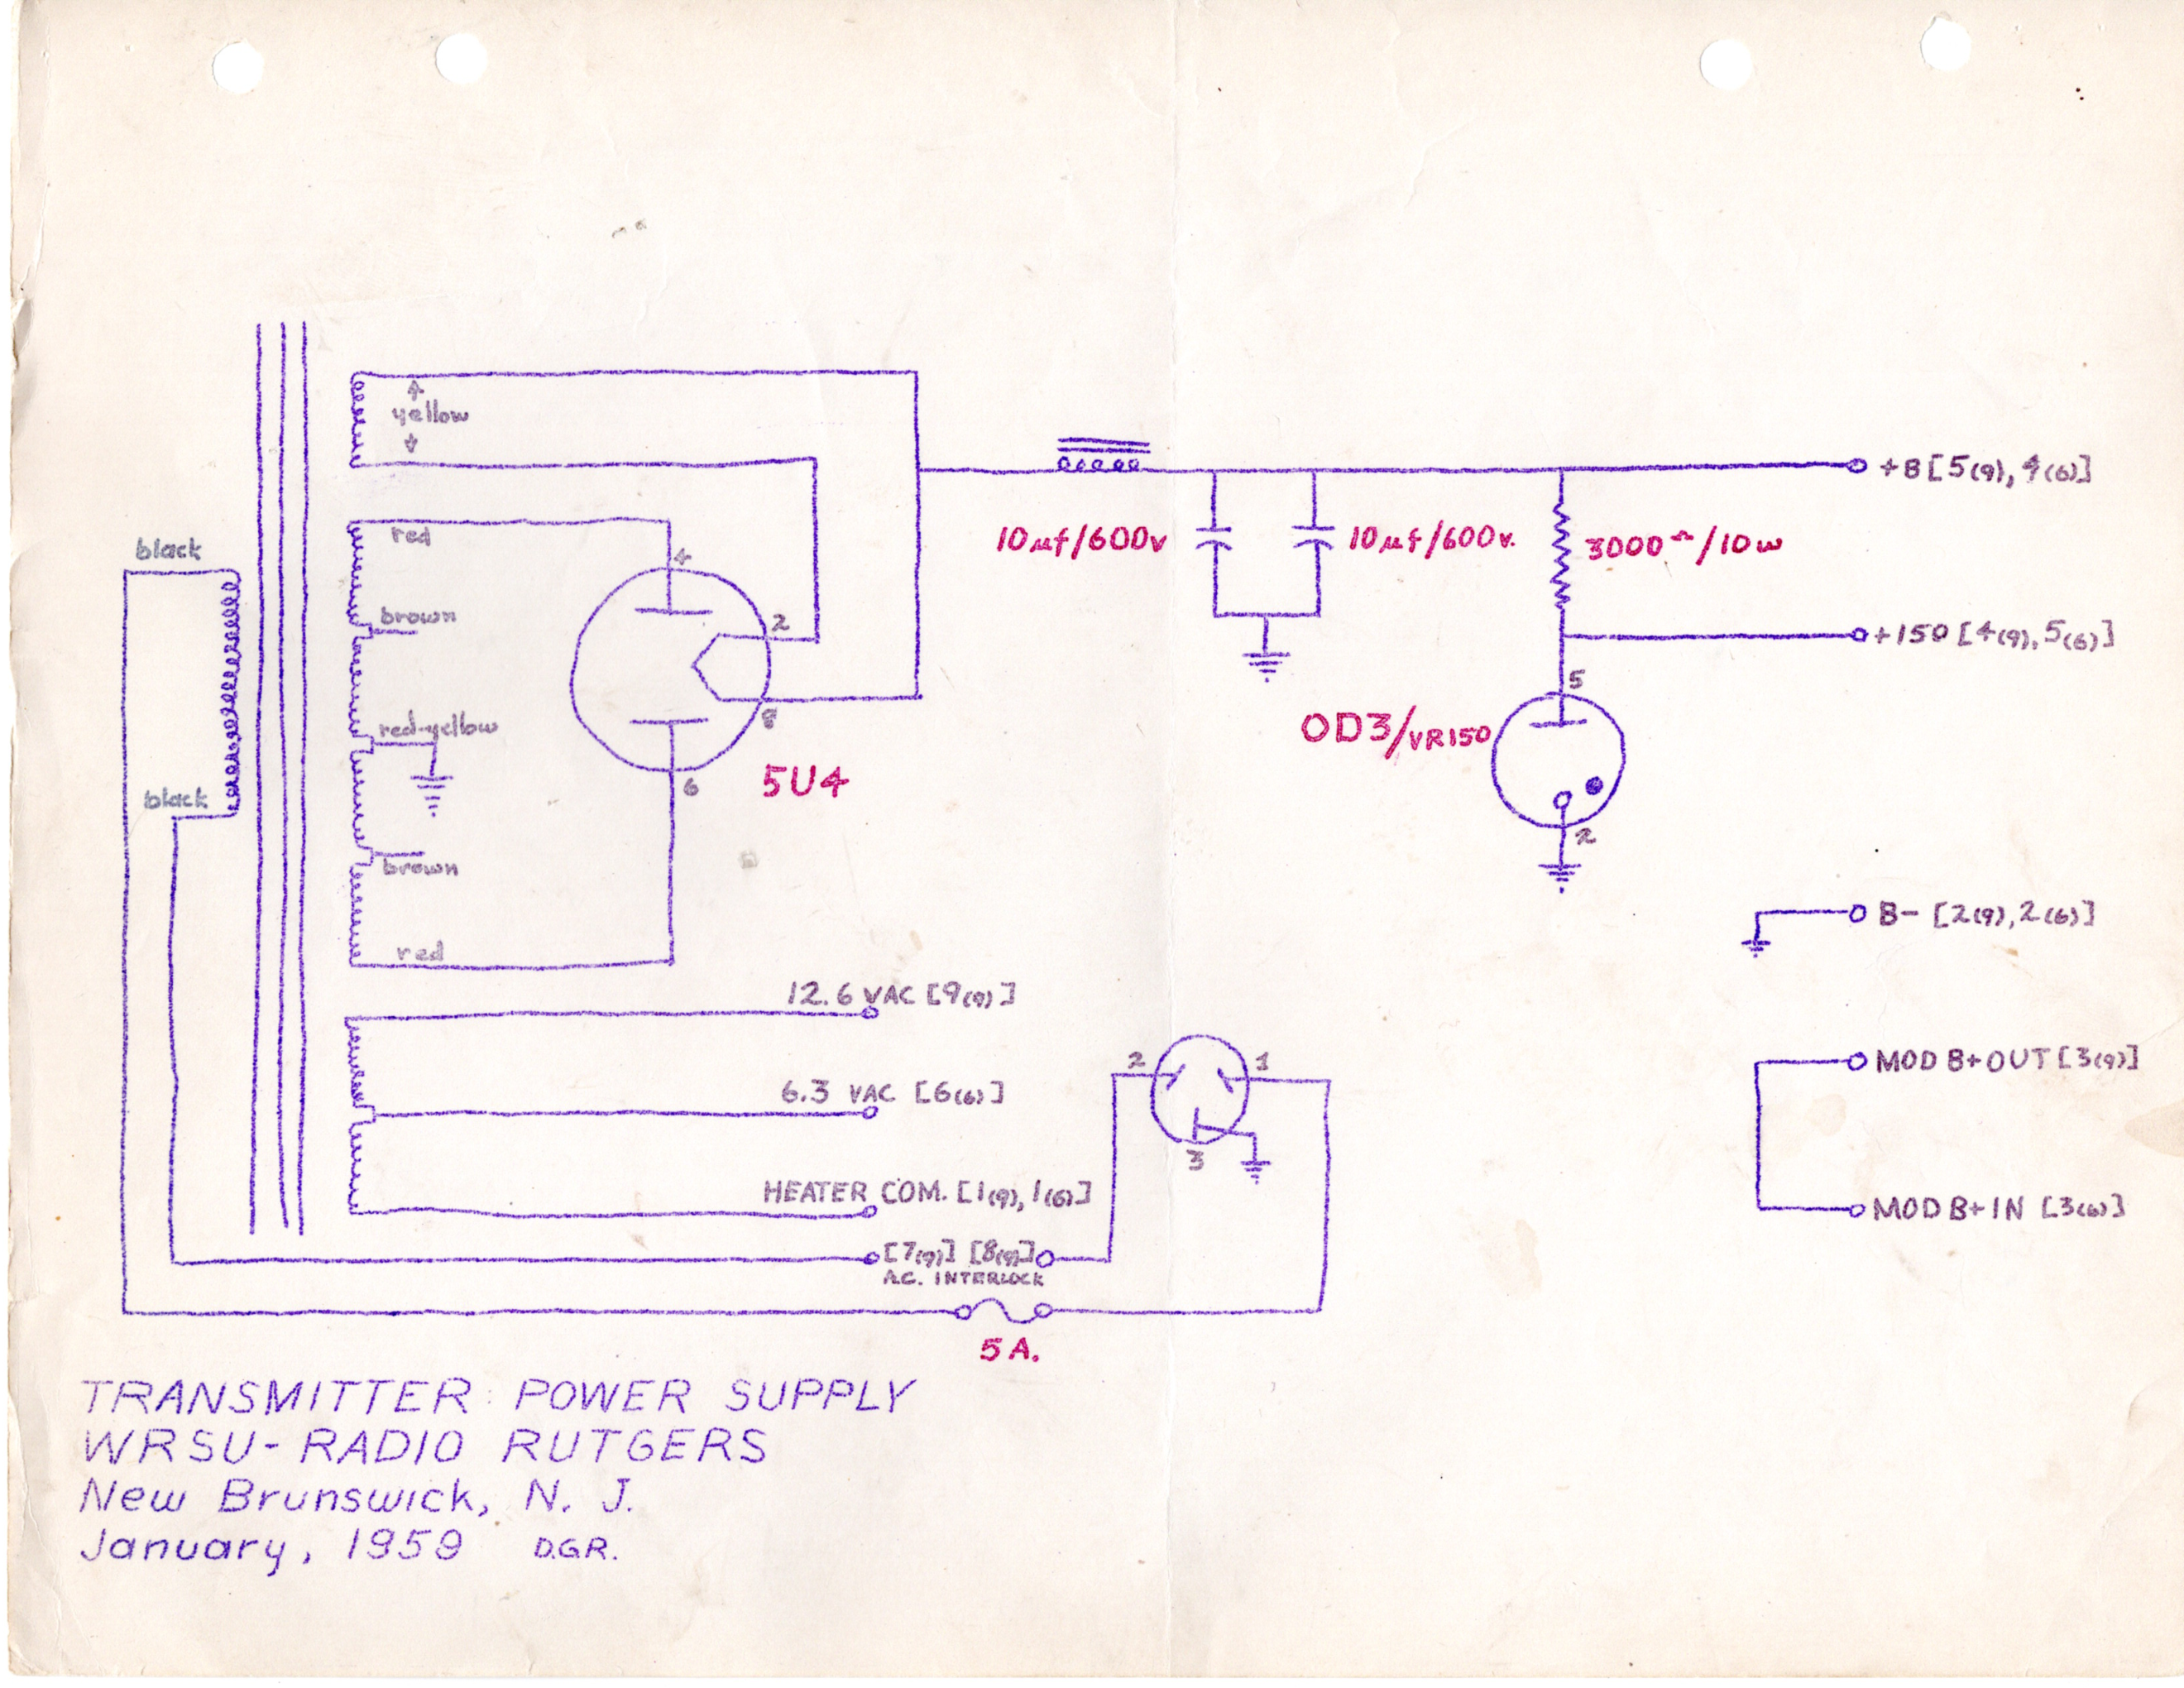 yellow
red
4
brown
2
red-yellow
8
5U4
6
brown
red
black
black
10μf/600v
10μf/600v.
3000Ω/10w
+B [5(9), 4(6)]
+150 [4(9), 5(6)]
5
OD3/VR150
2
B- [2(9), 2(6)]
12.6 VAC [9(9)]
6.3 VAC [6(6)]
HEATER COM. [1(9), 1(6)]
[7(9)] [8(9)]
A.C. INTERLOCK
5A.
2
1
3
MOD B+ OUT [3(9)]
MOD B+ IN [3(6)]
TRANSMITTER POWER SUPPLY
WRSU-RADIO RUTGERS
New Brunswick, N. J.
January, 1959 D.G.R.